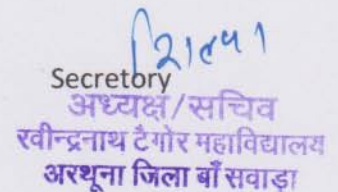 शिल्पा
Secretory
अध्यक्ष/सचिव
रवीन्द्रनाथ टैगोर महाविद्यालय
अरथूना जिला बाँसवाड़ा